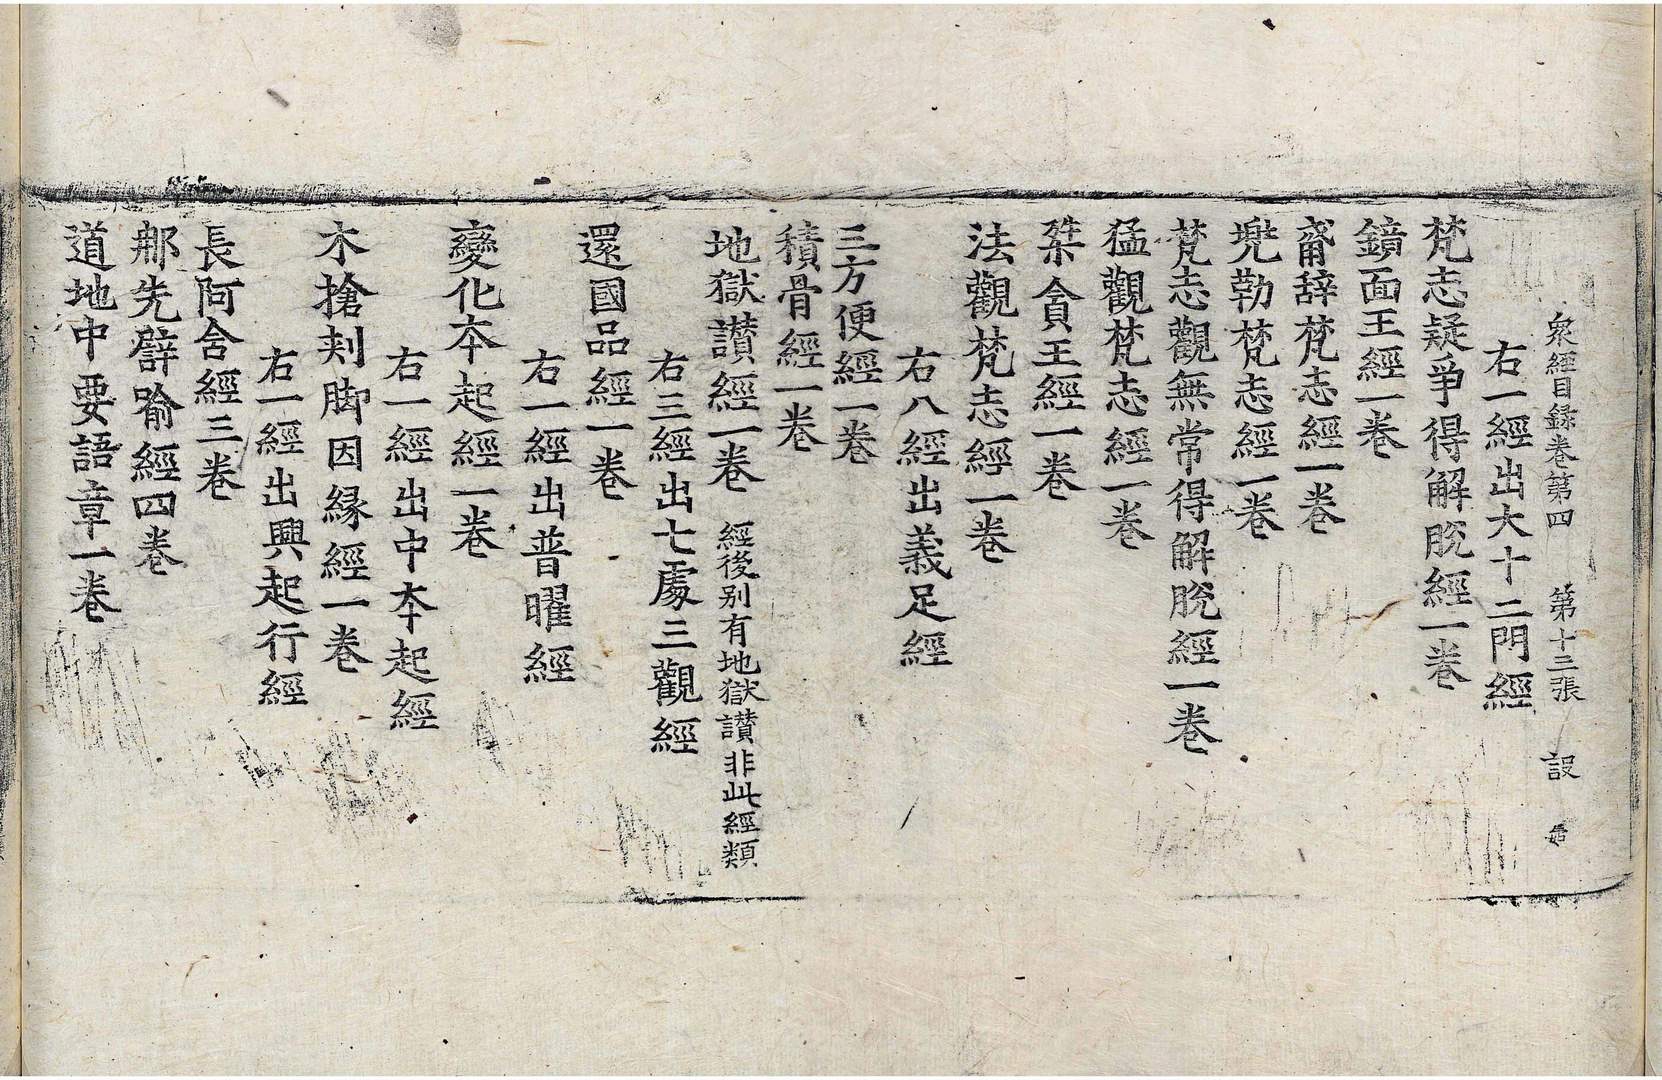 衆經目録卷第四 第十三張 設
右一經出大十二門經
梵志疑爭得解脫經一卷
鏡面王經一卷
甭辞梵志經一卷
兠勒梵志經一卷
梵志觀無常得解脫經一卷
猛觀梵志經一卷
桀貪王經一卷
法觀梵志經一卷
右八經出義足經
三方便經一卷
積骨經一卷
地獄讃經一卷 經後别有地獄讃非此經類
右三經出七處三觀經
還國品經一卷
右一經出普曜經
變化夲起經一卷
右一經出中夲起經
木搶刾脚因縁經一卷
右一經出興起行經
長阿含經三卷
那先譬喻經四卷
道地中要語章一卷